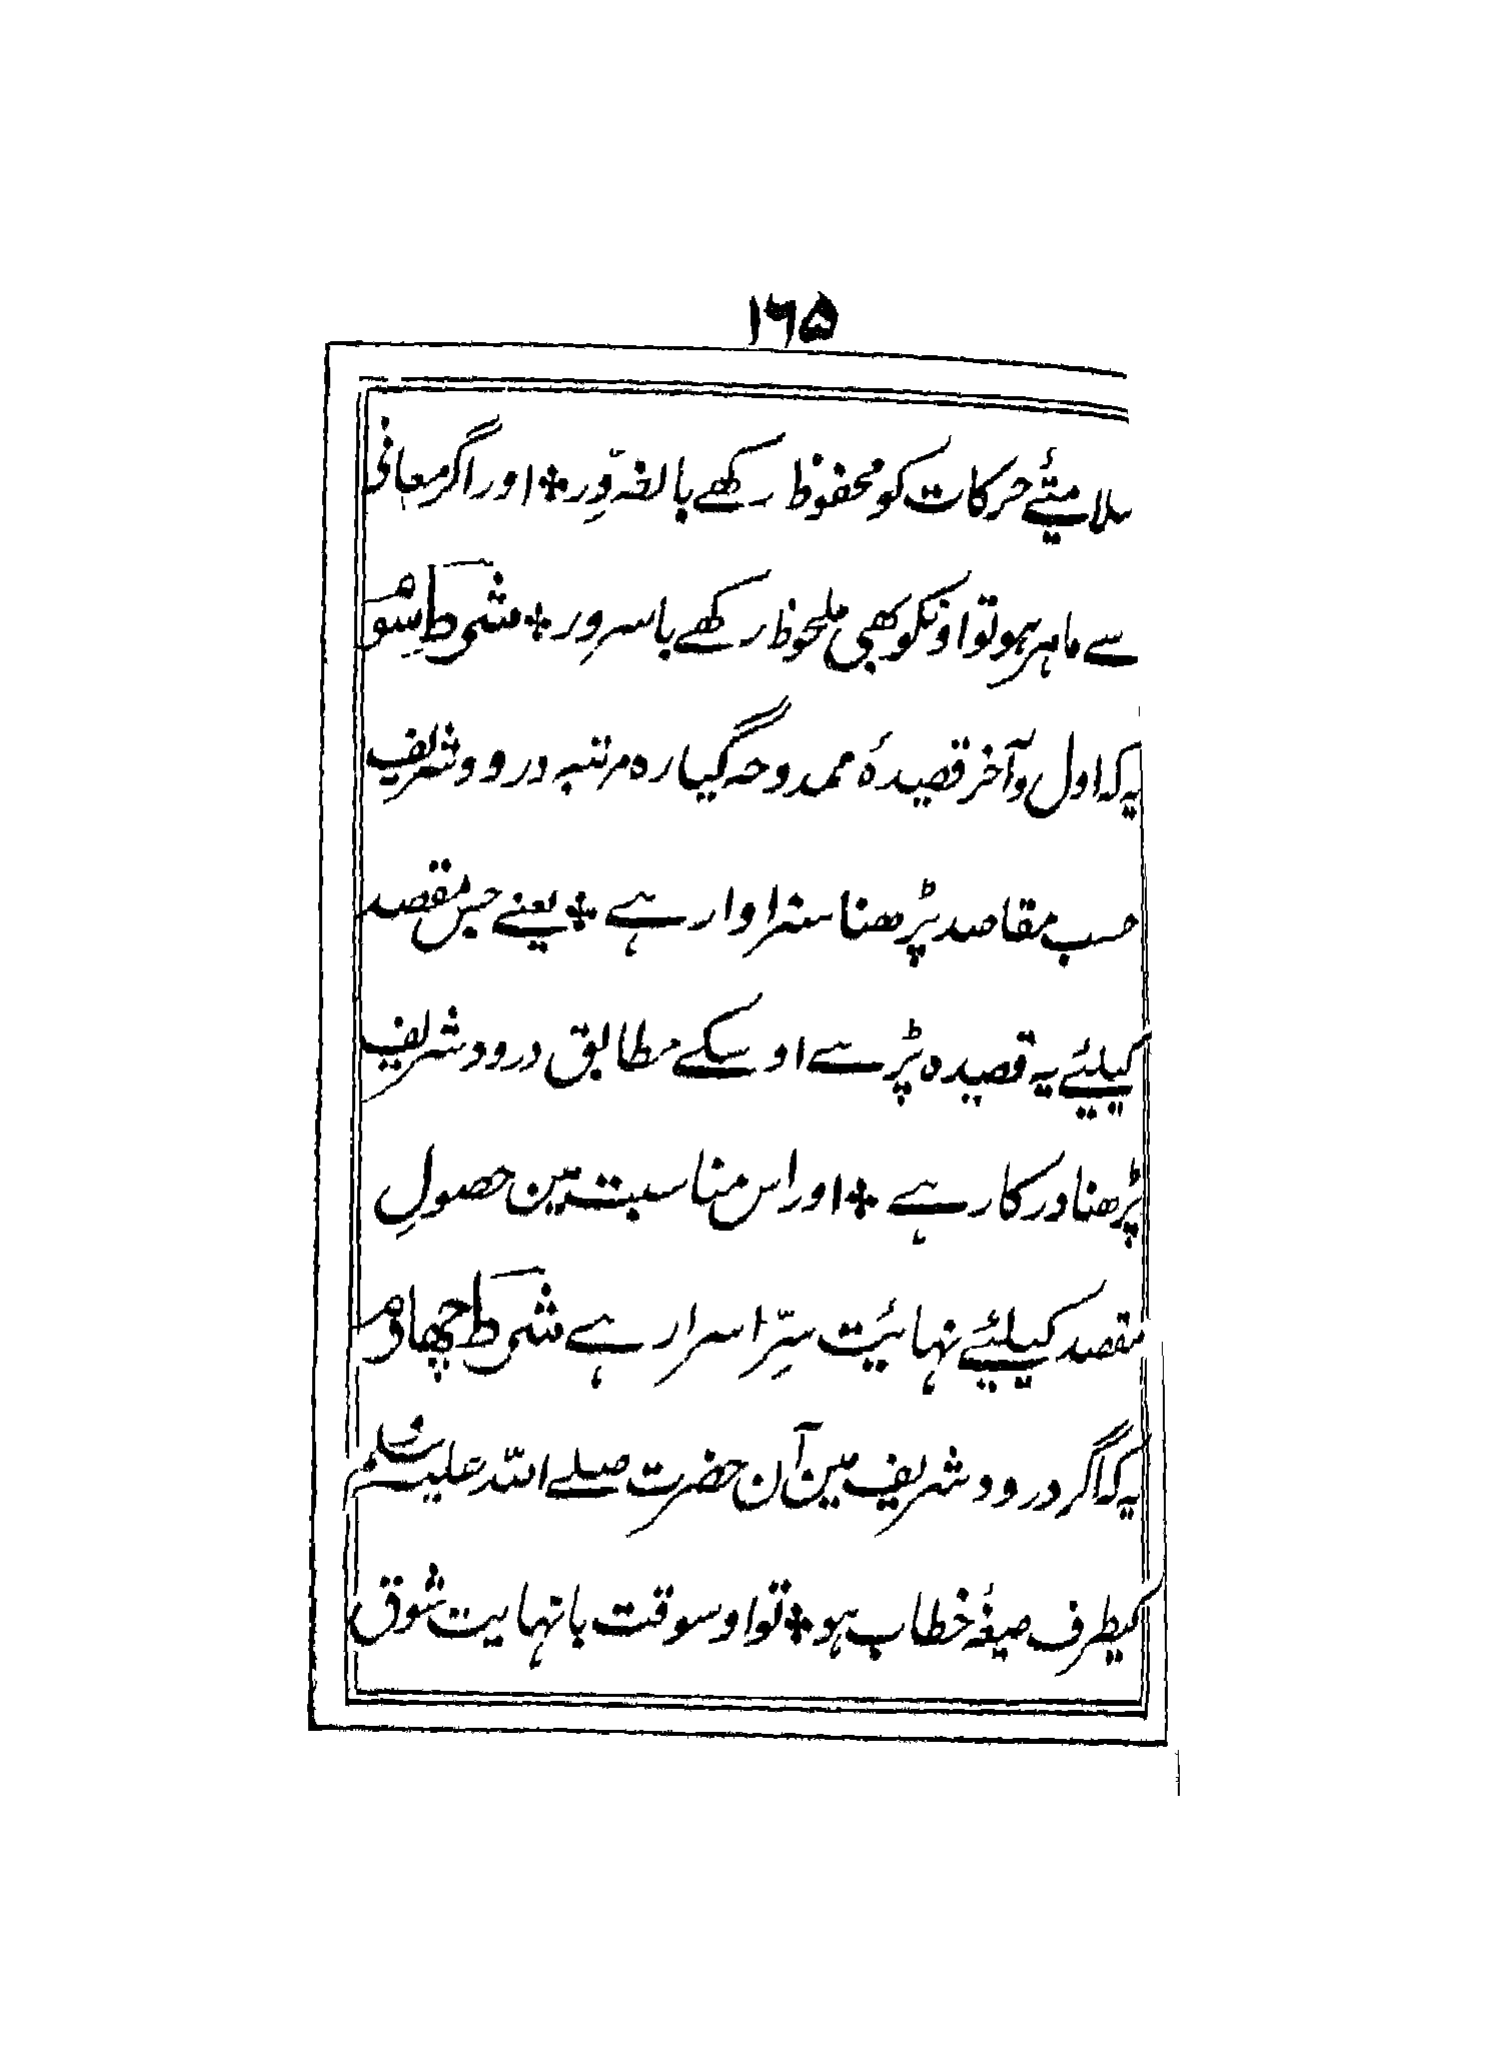 ۱۶۵
سلامتئے حرکات کو محفوظ رکھے بالضّرور ٭ اور اگر معانی
سے ماہر ہو تو اونکو بھی ملحوظ رکھے باسرور ٭ شرط سوم
یہ کہ اول و آخر قصیدۂ ممدوحہ گیارہ مرتبہ درود شریف
حسب مقاصد پڑھنا سزاوار ہے ٭ یعنے جس مقصد
کیلئے یہ قصیدہ پڑسے اوسکے مطابق درود شریف
پڑھنا درکار ہے ٭ اور اس مناسبت مین حصولِ
مقصد کیلئے نہائیت سرِّ اسرار ہے شرط چھارم
یہ کہ اگر درود شریف مین آن حضرت صلے اللہ علیہ وسلم
کیطرف صیغۂ خطاب ہو ٭ تو اوسوقت با نہایت شوق